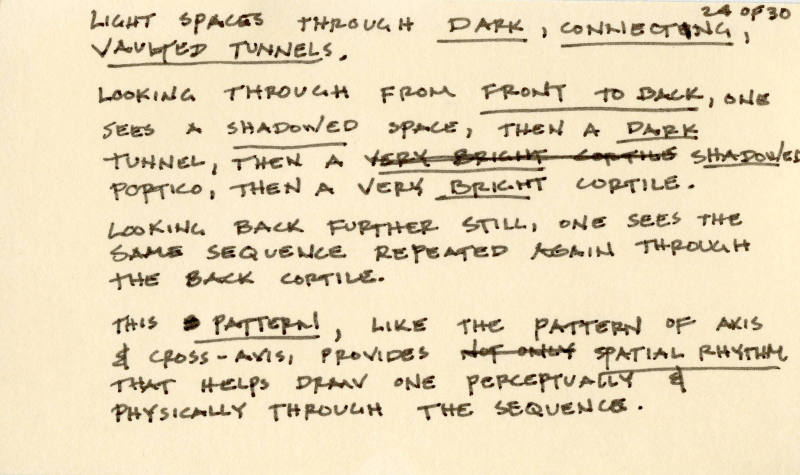 24 OF 30
LIGHT SPACES THROUGH DARK, CONNECTING,
VAULTED TUNNELS.
LOOKING THROUGH FROM FRONT TO BACK, ONE
SEES A SHADOWED SPACE, THEN A DARK
TUNNEL, THEN A VERY BRIGHT CORTILE SHADOWED
PORTICO, THEN A VERY BRIGHT CORTILE.
LOOKING BACK FURTHER STILL, ONE SEES THE
SAME SEQUENCE REPEATED AGAIN THROUGH
THE BACK CORTILE.
THIS PATTERN, LIKE THE PATTERN OF AXIS
& CROSS-AXIS, PROVIDES NOT ONLY SPATIAL RHYTHM
THAT HELPS DRAW ONE PERCEPTUALLY &
PHYSICALLY THROUGH THE SEQUENCE.